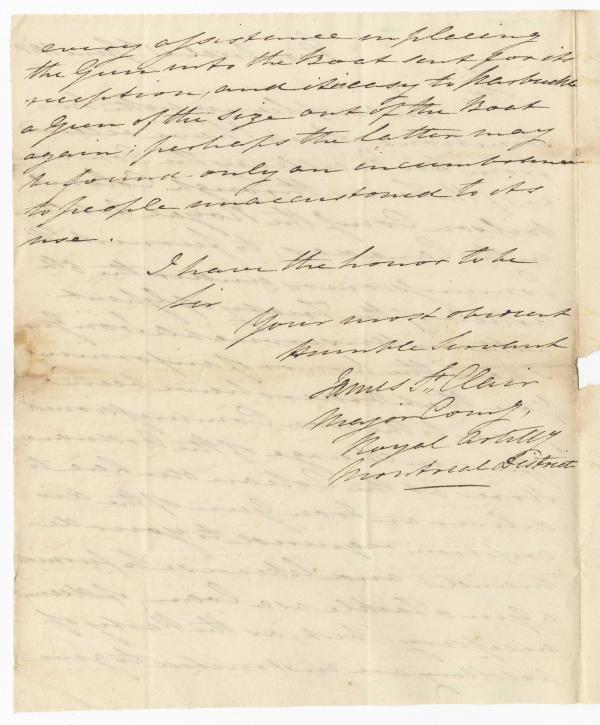 every assistance in placing
the Gun into the Boat sent for its
reception, and its easy to parbuckle
a Gun of the size out of the Boat
again; perhaps the latter may
be found only an incumbrance
to people unaccustomed to its
use.
I have the honor to be
Sir
Your most obedient
Humble Servant
James St. Clair
Major Comg,
Royal Artilly
Montreal District